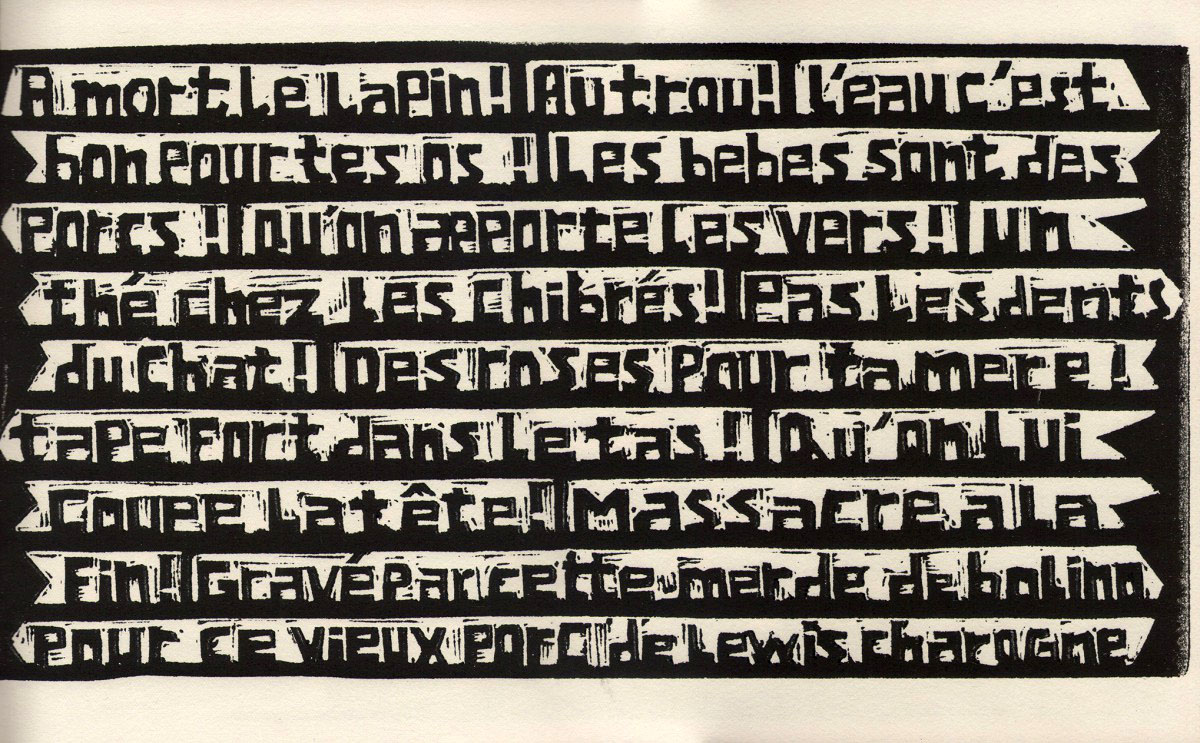 A mort Le Lapin! Au trou! L'eau c'est
bon pour tes os! Les bebes sont des
Porcs! Qu'on apporte Les vers! Un
thé chez Les Chibrés! Pas Les dents
du Chat! Des roses Pour ta mere!
tape Fort dans Le tas! Qu'on Lui
Coupe La tête! Massacre a La
Fin! Gravé Par cette merde de bolino
Pour ce vieux Porc de Lewis charogne